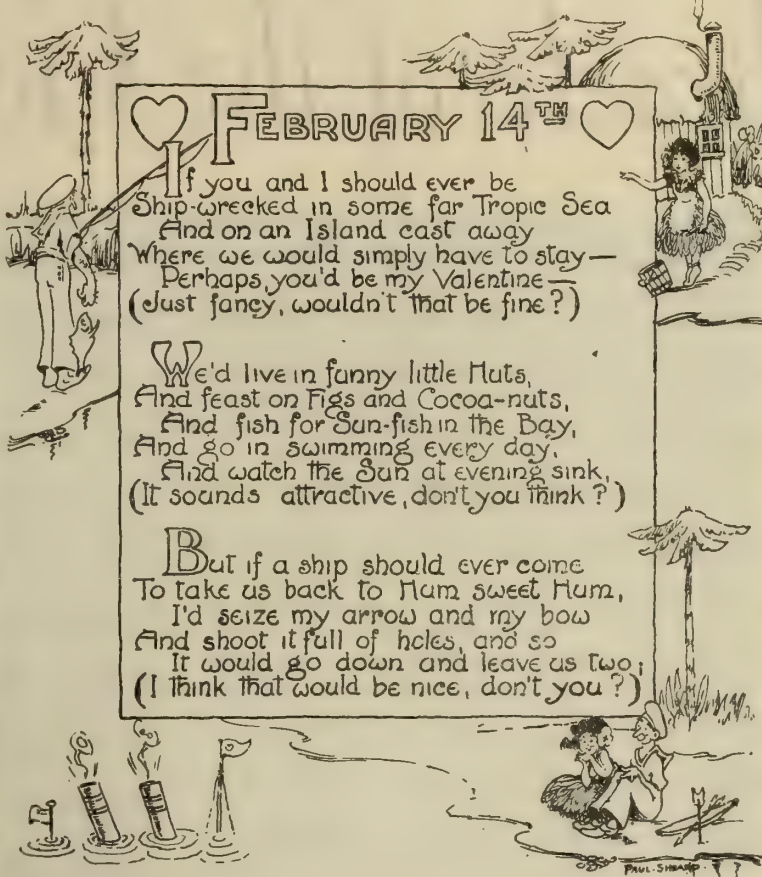 FEBRUARY 14TH
If you and I should ever be
Ship-wrecked in some far Tropic Sea
And on an Island cast away
Where we would simply have to stay—
Perhaps, you'd be my Valentine—
(Just fancy, wouldn't that be fine?)
We'd live in funny little Huts,
And feast on Figs and Cocoa-nuts,
And fish for Sun-fish in the Bay,
And go in swimming every day,
And watch the Sun at evening sink,
(It sounds attractive, don't you think?)
But if a ship should ever come
To take us back to Hum sweet Hum,
I'd seize my arrow and my bow
And shoot it full of holes, and so
It would go down and leave us two;
(I think that would be nice, don't you?)
PAUL·